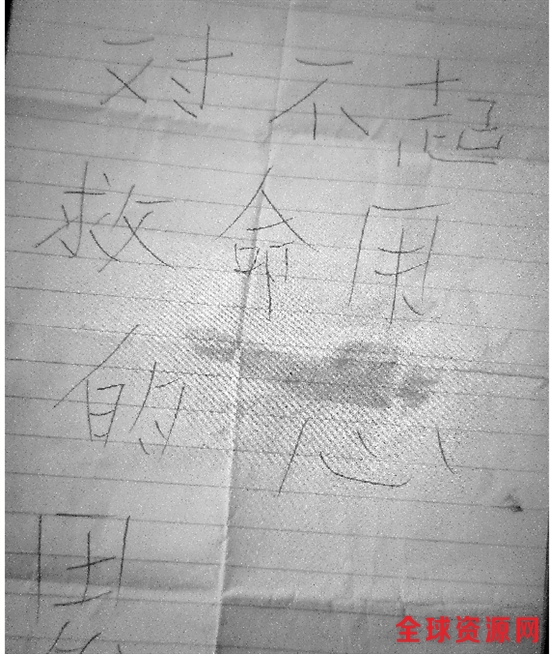 对不起
救命用
的
全球资源网